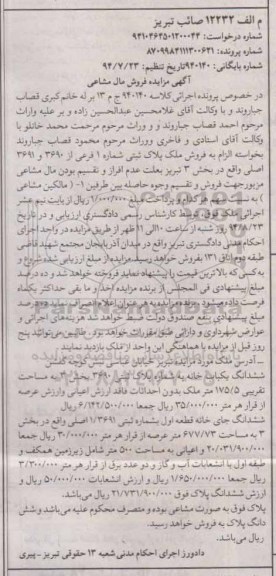 م الف ۱۲۲۳۲ صائب تبریز
شماره درخواست: ۹۴۱۰۴۶۳۵۰۱۲۰۰۰۴۴
شماره پرونده: ۸۷۰۹۹۸۴۱۱۱۳۰۰۶۲۱
شماره بایگانی: ۹۴۰۱۴۰ تاریخ تنظیم: ۹۴/۷/۲۳
آگهی مزایده فروش مال مشاعی
در خصوص پرونده اجرائی کلاسه ۹۴۰۱۴۰ ج م ۱۳ بر له خانم کبری قصاب
جباروند و با وکالت آقای غلامحسین عبدالحسین زاده و بر علیه وراث
مرحوم احمد قصاب جباروند و و وراث مرحوم مرحمت محمد خانلو با
وکالت آقای استادی و فاخری ووراث مرحوم محمود قصاب جباروند
بخواسته الزام به فروش ملک پلاک ثبتی شماره ۱ فرعی از ۳۶۹۰ و ۳۶۹۱
اصلی واقع در بخش ۳ تبریز بعلت عدم افراز و تقسیم بودن مال مشاعی
مزبور جهت فروش و تقسیم وجوه حاصله بین طرفین ۱- ( مالکین مشاعی
) به نسبت سهم هر کدام و پرداخت مبلغ ۱/۰۰۰/۰۰۰ ریال از بابت نیم عشر
اجرائی ملک فوق توسط کارشناس رسمی دادگستری ارزیابی و در تاریخ
روز شنبه از ساعت ۱۰ الی ۱۱ ظهر از طریق مزایده در واحد اجرای
احکام مدنی دادگستری تبریز واقع در میدان آذربایجان مجتمع شهید قاضی
طبقه دوم اتاق ۱۳۱ بفروش خواهد رسید مزایده از مبلغ ارزیابی شده شروع و
به کسی که بالاترین قیمت را پیشنهاد نماید فروخته خواهد شد و ده درصد
مبلغ پیشنهادی فی المجلس از برنده مزایده اخذ و ما بقی حداکثر یکماه
فرصت داده میشود برنده مزایده به هر عنوان اعلام انصراف نماید ده درصد
مبلغ پیشنهادی بنفع صندوق دولت ضبط خواهد شد هزینه‌های اجرائی و
عوارض شهرداری و دارائی طبق مقررات خواهد بود. طالبین می‌توانند پنج
روز قبل از مزایده با هماهنگی این واحد از ملک بازدید نمایند
ششدانگ یکباب خانه به شماره پلاک ثبتی
تقریبی ۱۷۵/۵ متر ملک بدون احداثات فاقد ارزش اعیانی وارزش عرصه
از قرار هر متر ۳۵/۰۰۰/۰۰۰ ریال جمعا ۶/۱۴۲/۵۰۰/۰۰۰ ریال
ششدانگ جای خانه قطعه اول بشماره ثبتی ۱/۳۶۹۱ اصلی واقع در بخش
۳ به مساحت ۶۷۷/۷۳ متر عرصه از قرار هر متر ۳۰/۰۰۰/۰۰۰ ریال جمعا
۲۰/۰۳۱/۹۰۰/۰۰۰ و اعیانی به مساحت ۵۰۰ متر شامل زیرزمین همکف و
طبقه اول با انشعابات آب و گاز و دو عدد برق از قرار هر متر ۳/۳۰۰/۰۰۰
ریال جمعا ۱/۶۵۰/۰۰۰/۰۰۰ ریال و ارزش انشعابات ۵۰/۰۰۰/۰۰۰ ریال و
ارزش ششدانگ پلاک فوق ۲۱/۷۳۱/۹۰۰/۰۰۰ ریال می‌باشد.
پلاک فوق به صورت مشاعی بوده و متصرف محکوم علیه می‌باشد و شش
دانگ پلاک به فروش خواهد رسید.
ریال می‌باشد.
دادورز اجرای احکام مدنی شعبه ۱۳ حقوقی تبریز - پیری